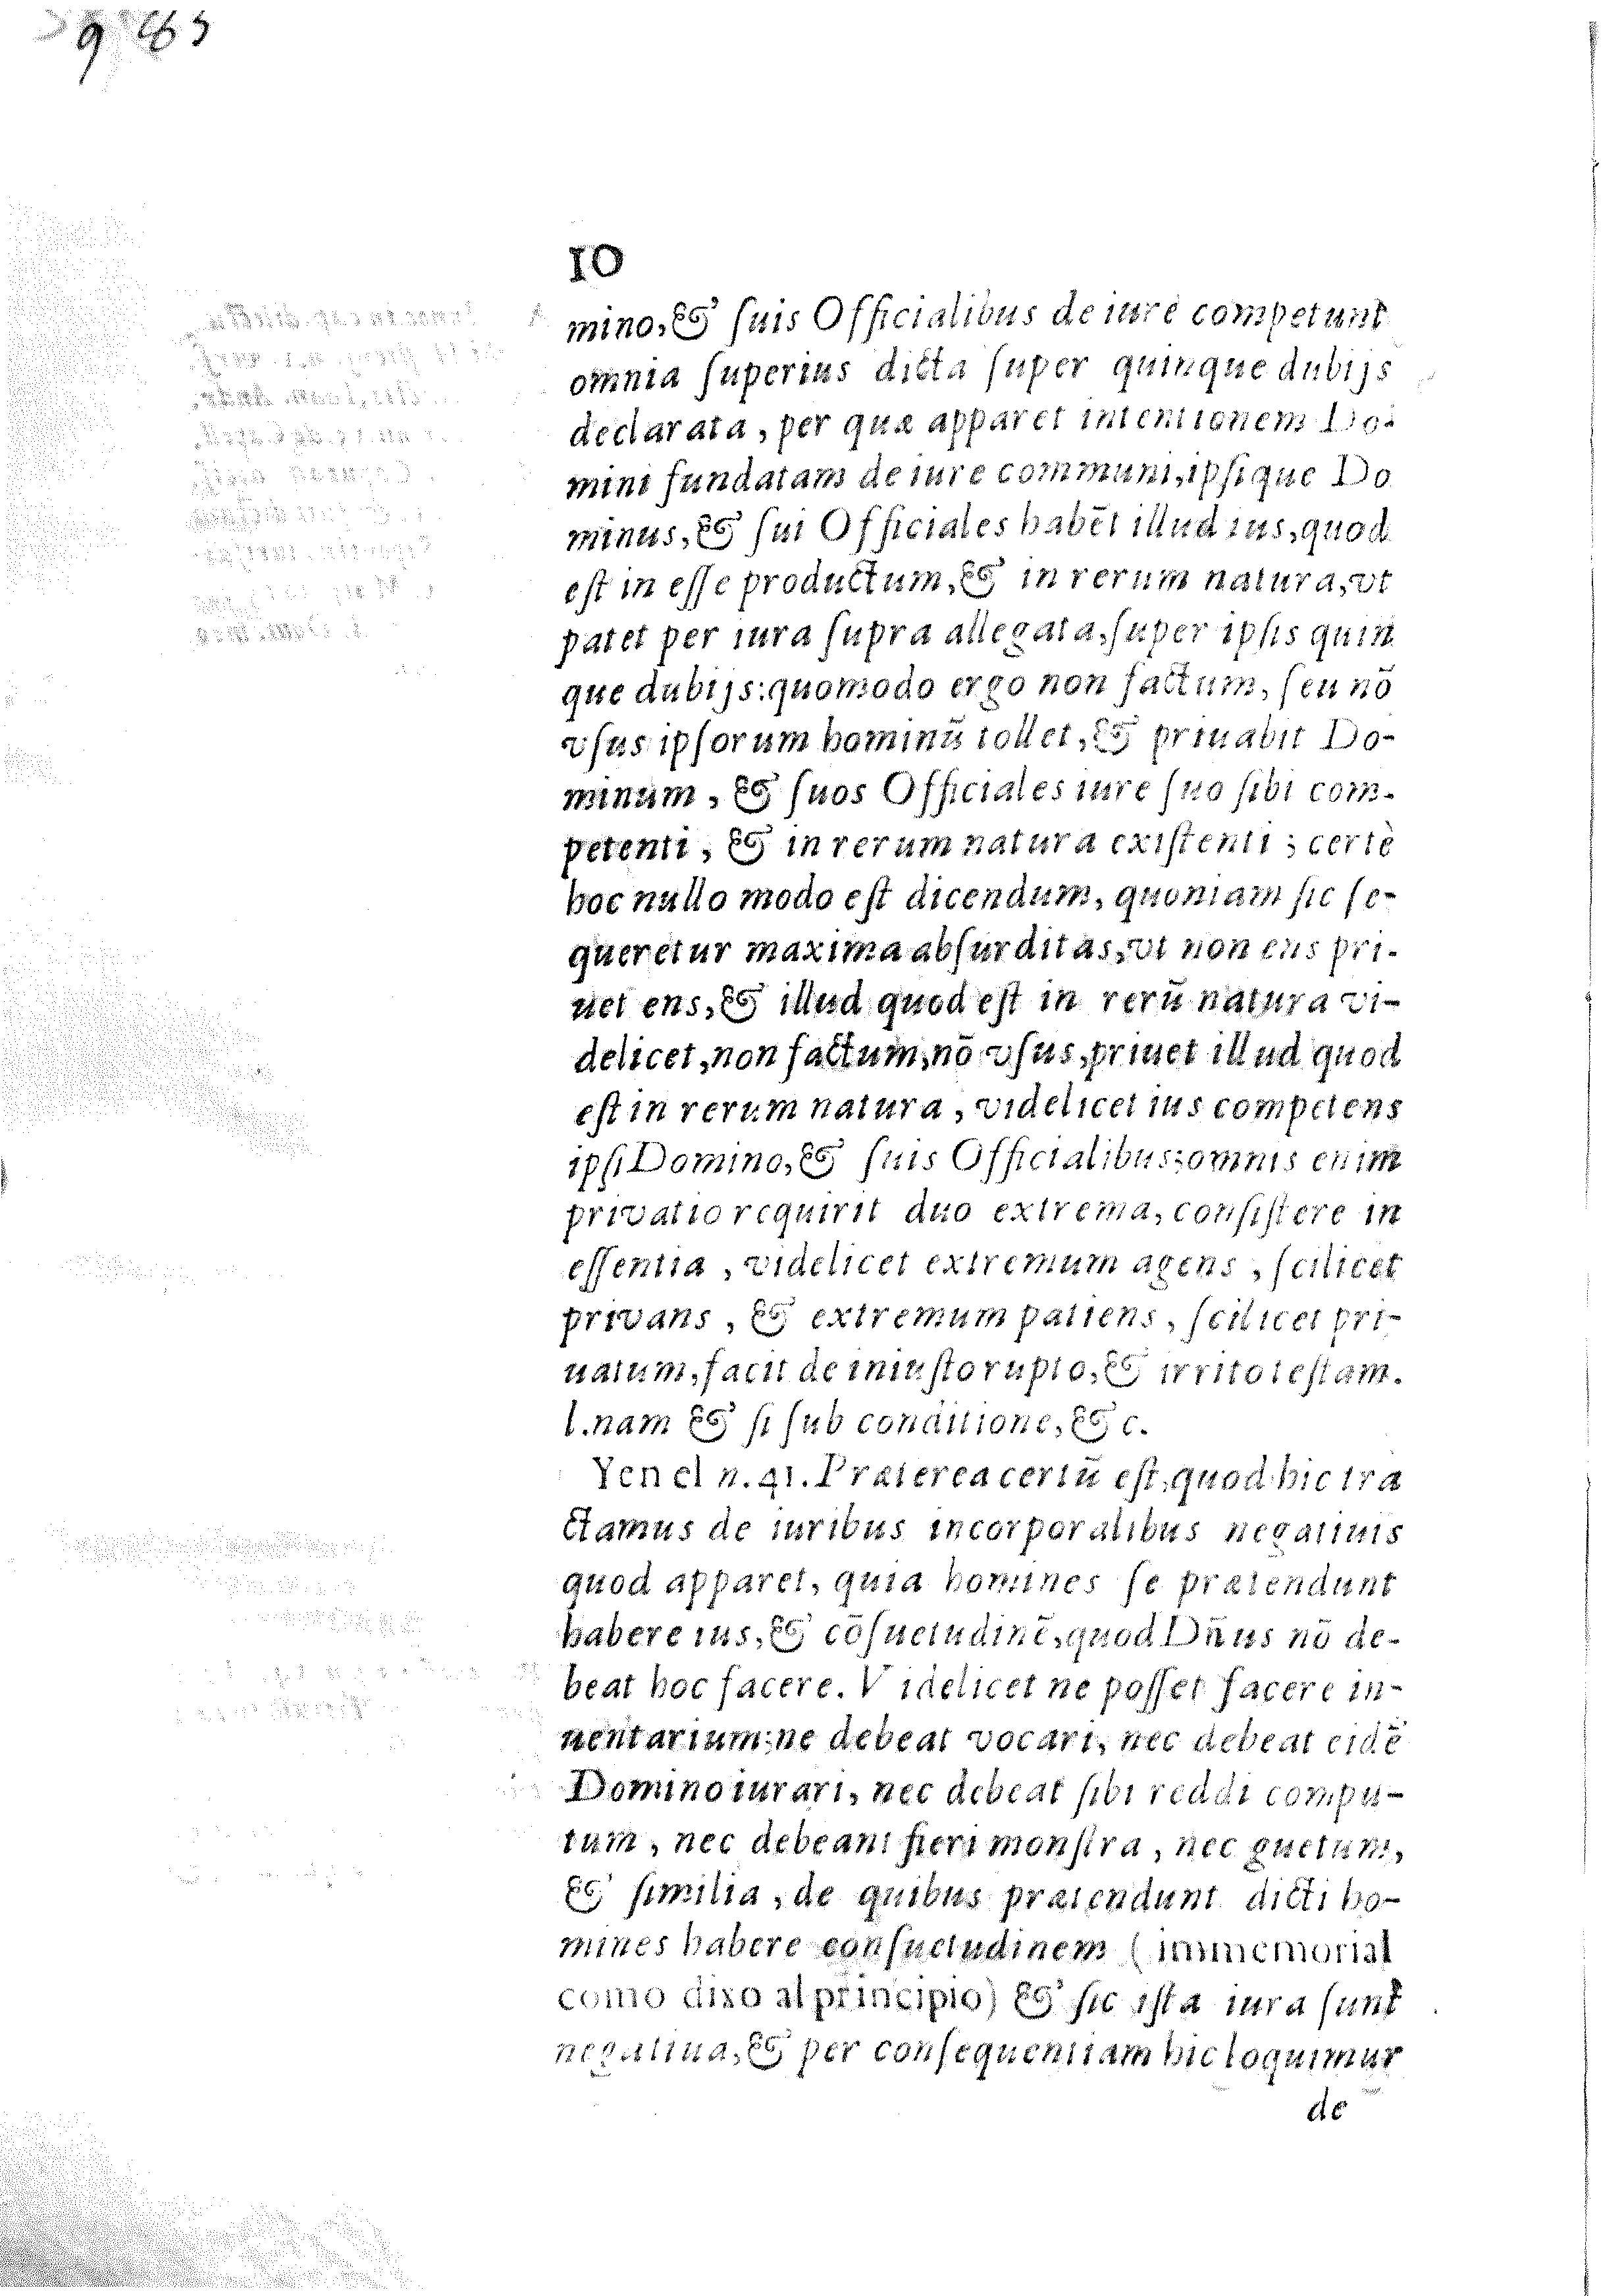 10
mino, & ſuis Officialibus de iure competunt
omnia ſuperius dicta ſuper quinque dubijs
declarata, per quæ apparet intentionem Do-
mini fundatam de iure communi, ipſique Do
minus, & ſui Officiales habēt illud ius, quod
eſt in eſſe productum, & in rerum natura, vt
patet per iura ſupra allegata, ſuper ipſis quin
que dubijs: quomodo ergo non factum, ſeu nō
vſus ipſorum hominū tollet, & priuabit Do-
minum, & ſuos Officiales iure ſuo ſibi com-
petenti, & in rerum natura exiſtenti; certè
hoc nullo modo eſt dicendum, quoniam ſic ſe-
queretur maxima abſurditas, vt non ens pri-
uet ens, & illud quod eſt in rerū natura vi-
delicet, non factum, nō vſus, priuet illud quod
eſt in rerum natura, videlicet ius competens
ipſi Domino, & ſuis Officialibus; omnis enim
privatio requirit duo extrema, conſiſtere in
eſſentia, videlicet extremum agens, ſcilicet
privans, & extremum patiens, ſcilicet pri-
uatum, facit de iniuſto rupto, & irrito teſtam.
l. nam & ſi ſub conditione, & c.
Yen el n. 41. Præterea certū eſt, quod hic tra
ctamus de iuribus incorporalibus negatiuis
quod apparet, quia homines ſe prætendunt
habere ius, & cōſuetudinē, quod Dn̄us nō de-
beat hoc facere. Videlicet ne poſſet facere in-
uentarium: ne debeat vocari, nec debeat eidē
Domino iurari, nec debeat ſibi reddi compu-
tum, nec debeant fieri monſtra, nec guetum,
& ſimilia, de quibus prætendunt dicti ho-
mines habere conſuetudinem (immemorial
como dixo al principio) & ſic iſta iura ſunt
negatiua, & per conſequentiam hic loquimur
de